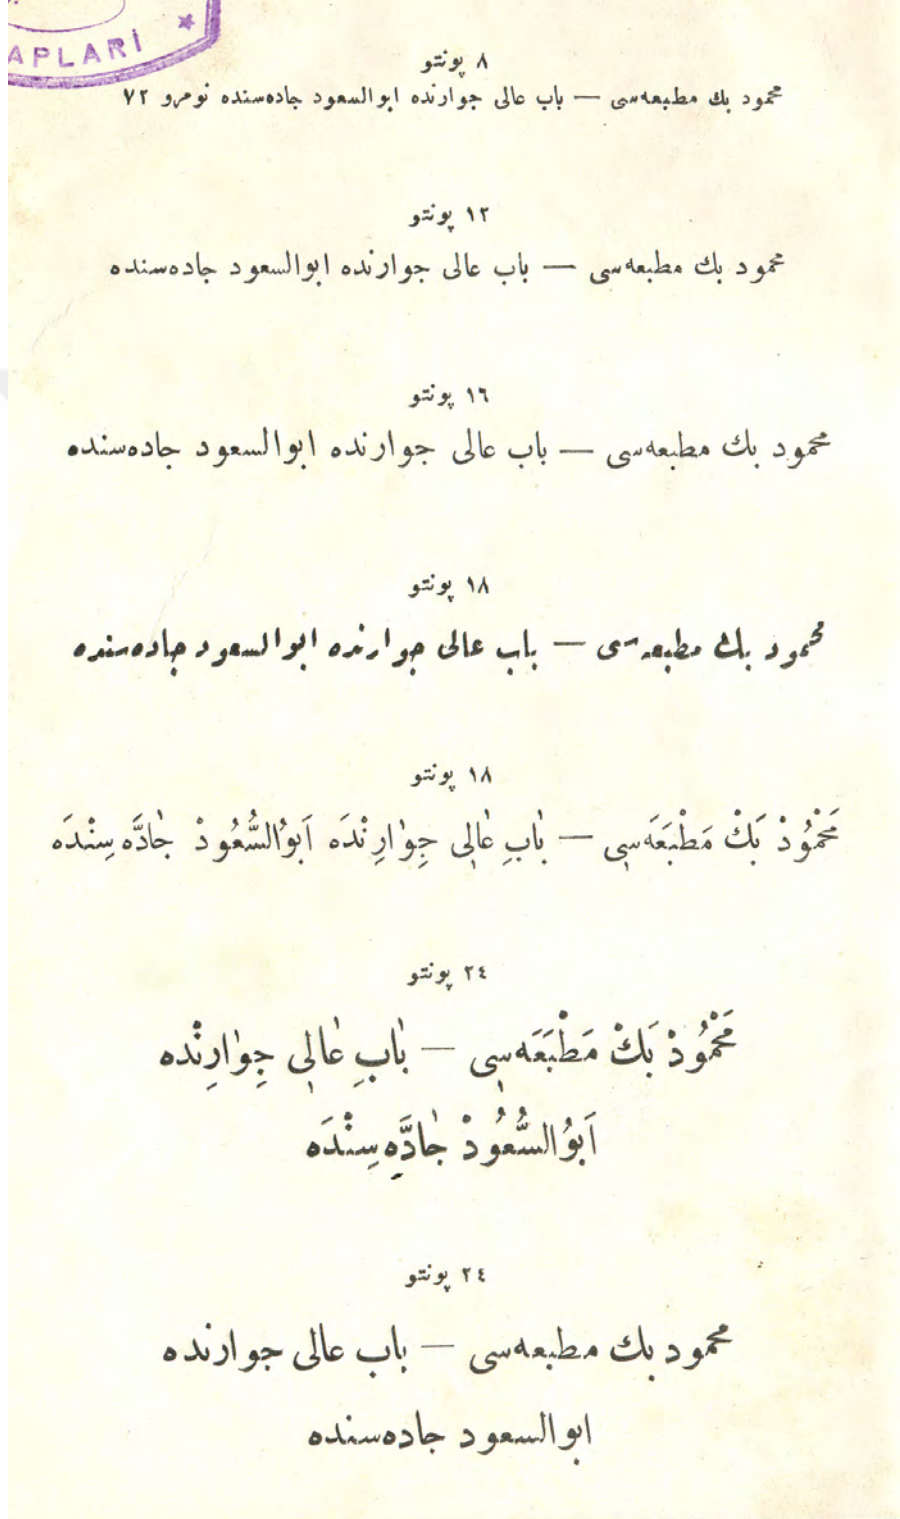 APLARİ
٨ پونتو
محمود بك مطبعه‌سی — باب عالی جوارنده ابوالسعود جاده‌سنده نومرو ٧٢
١٢ پونتو
محمود بك مطبعه‌سی — باب عالی جوارنده ابوالسعود جاده‌سنده
١٦ پونتو
محمود بك مطبعه‌سی — باب عالی جوارنده ابوالسعود جاده‌سنده
١٨ پونتو
محمود بك مطبعه‌سی — باب عالی جوارنده ابوالسعود جاده‌سنده
١٨ پونتو
مَحْمُودْ بَكْ مَطْبَعَه‌سٖی — بٰابِ عٰالٖی جِوٰارِنْدَه اَبوُالسُّعُودْ جٰادَّه‌سِنْدَه
٢٤ پونتو
مَحْمُودْ بَكْ مَطْبَعَه‌سٖی — بٰابِ عٰالٖی جِوٰارِنْده
اَبوُالسُّعُودْ جٰادَّه‌سِنْدَه
٢٤ پونتو
محمود بك مطبعه‌سی — باب عالی جوارنده
ابوالسعود جاده‌سنده